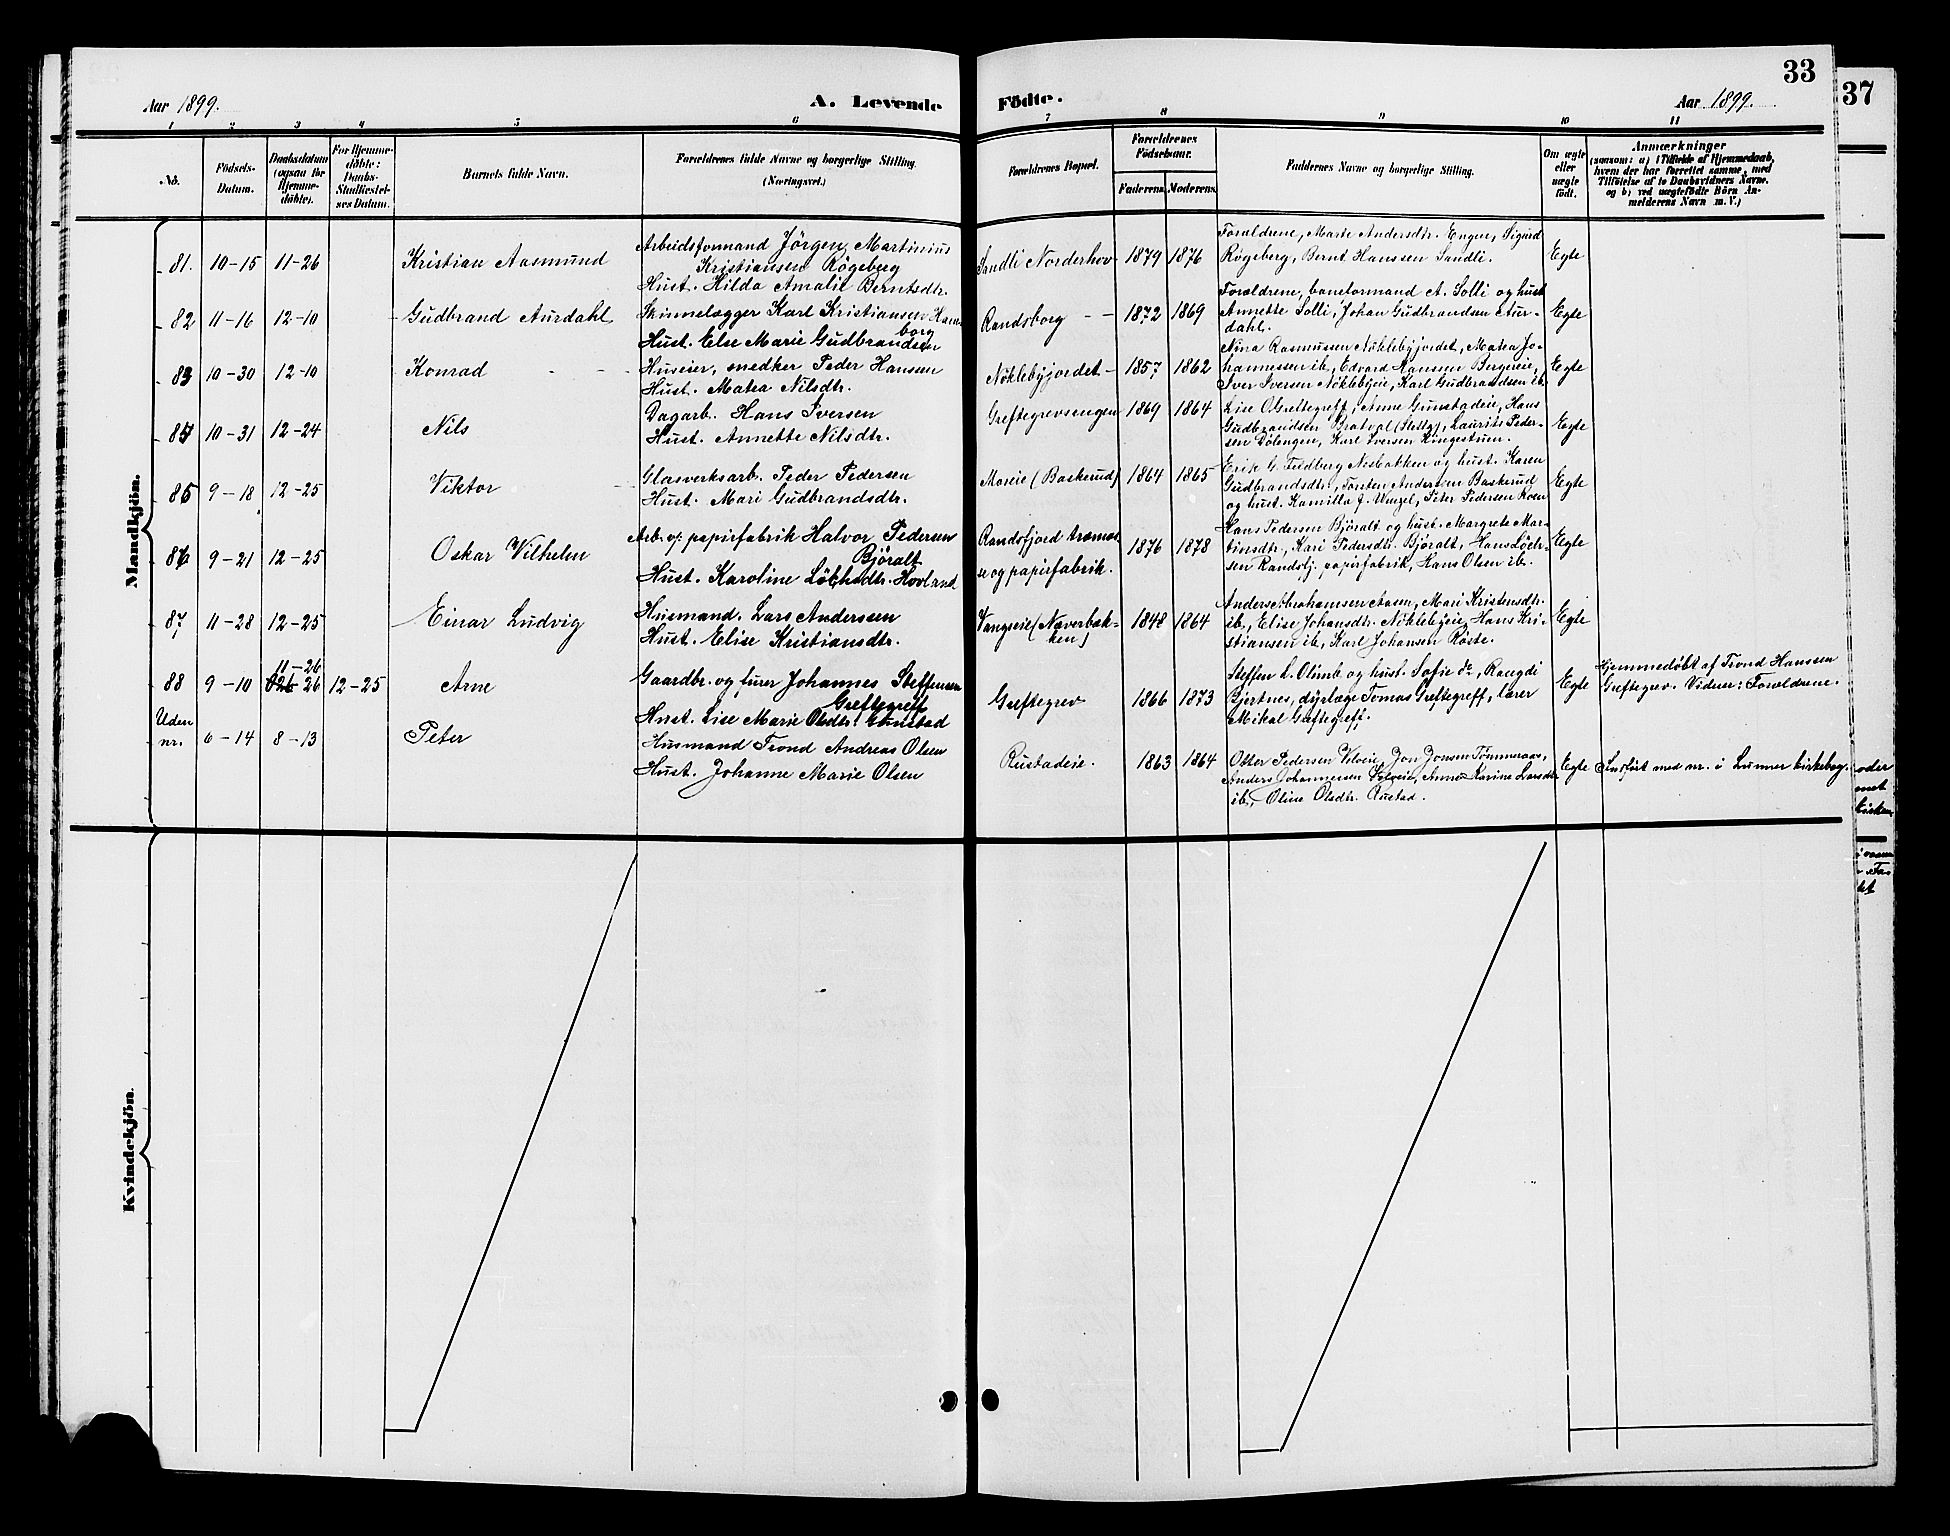 33
37
Aar 1899.
A. Levende
Födte.
Aar 1899.
1 2 3 4 5 6 7 8 9 10 11
No.
Födsels-
Datum.
Daabsdatum
(ogsaa for
Hjemme-
døbte).
For Hjemme-
døbte:
Daabs-
Stadfæstel-
ses Datum.
Barnets fulde Navn.
Forældrenes fulde Navne og borgerlige Stilling.
(Næringsvei.)
Forældrenes Bopæl.
Forældrenes
Fødselsaar.
Faderens. Moderens.
Faddernes Navne og borgerlige Stilling.
Om ægte
eller
uægte
født.
Anmærkninger
(saasom: a) i Tilfælde af Hjemmedaab,
hvem der har forrettet samme, med
Tilföielse af to Daabsvidners Navne,
og b) ved uægtefødte Börn An-
melderens Navn m. V.)
Mandkjön.
81. 10-15 11-26 Kristian Aasmund
Arbeidsformand Jörgen Martinius
Kristiansen Rögeberg
Hust. Hilda Amalie Berntsdtr.
Sandli Norderhov 1879 1876
Forældrene, Marte Andersdtr. Enger, Sigurd
Røgeberg, Bernt Hanssen Sandli.
Egte
82 11-16 12-10 Gudbrand Aurdahl
Skinnelægger Karl Kristiansen Hans-
borg
Hust. Else Marie Gudbrandsen
Randsborg 1872 1869
Forældrene, baneformand A. Solli og hust
Annette Solli, Johan Gudbrandsen Aur-
dahl.
Egte
83 10-30 12-10 Konrad
Huseier, snedker Peder Hansen
Hust. Matea Nilsdtr.
Nöklebyjordet 1857 1862
Nina Rasmussen Nöklebyjordet, Matea Jo-
hannessen ib., Edvard Hanssen Bergereie,
Iver Iversen Nöklebyeie, Karl Gudbrandsen ib.
Egte
84 10-31 12-24 Nils
Dagarb. Hans Iversen
Hust. Annette Nilsdtr.
Greftegrevsengen 1869 1864
Lise O. Greftegreff, Anne Gunstadeie, Hans
Gudbrandsen Bratval, Laurits Peder-
sen Dölengen, Karl Iversen Ringestuen.
Egte
85 9-18 12-25 Viktor
Glasverksarb. Peder Pedersen
Hust. Mari Gudbrandsdtr.
Moreie (Baskerud) 1864 1865
Erik G. Feldberg Nesbakken og hust. Karen
Gudbrandsdtr, Torsten Andersen Baskerud
og hust. Kamilla J. Wurzel, Peter Pedersen Roen
Egte
86 9-21 12-25 Oskar Vilhelm
Arb. v/ papirfabrik Halvor Pedersen
Björalt
Hust. Karoline Hovland
Randsfjord træmas-
se og papirfabrik. 1876 1878
Hans Pedersen Björalt og hust. Margrete Mar-
tinsdtr., Kari Pedersdtr. Björalt, Hans Löch-
sen Randsfj. papirfabrik, Hans Olsen ib.
Egte
87 11-28 12-25 Einar Ludvig
Husmand. Lars Anderssen
Hust. Elise Kristiansdtr.
Vangseie (Naverbak-
ken) 1848 1864
Anders Abrahamsen Aasen, Mari Kristensdtr.
ib., Elise Johansdtr. Nöklebyeie, Hans Kri-
stiansen ib., Karl Johansen Röste.
Egte
88 9-10 11-26 26 12-25 Arne
Gaardbr. og lærer Johannes Steffensen
Greftegreff
Hust. Lise Marie Olsdtr. Gunstad
Greftegrev 1866 1873
Steffen L. Olimb og hust. Sofie do, Rangdi
Bjertnes, dyrlæge Tomas Greftegreff, lærer
Mikal Greftegreff.
Egte
Hjemmedøbt af Trond Hanssen
Greftegrev. Vidner: Forældrene.
Uden
nr. 6-14 8-13 Peter
Husmand Trond Andreas Olsen
Hust. Johanne Marie Olsen
Rustadeie. 1863 1864
Otter Pedersen Velveie, Jon Jonsen Tömmeraas,
Anders Johannessen Velveie, Anne Karine Larsdtr
ib., Oline Olsdtr. Rustad.
Egte
Indfört med nr. i Lunner kirkebog.
Kvindekjön.